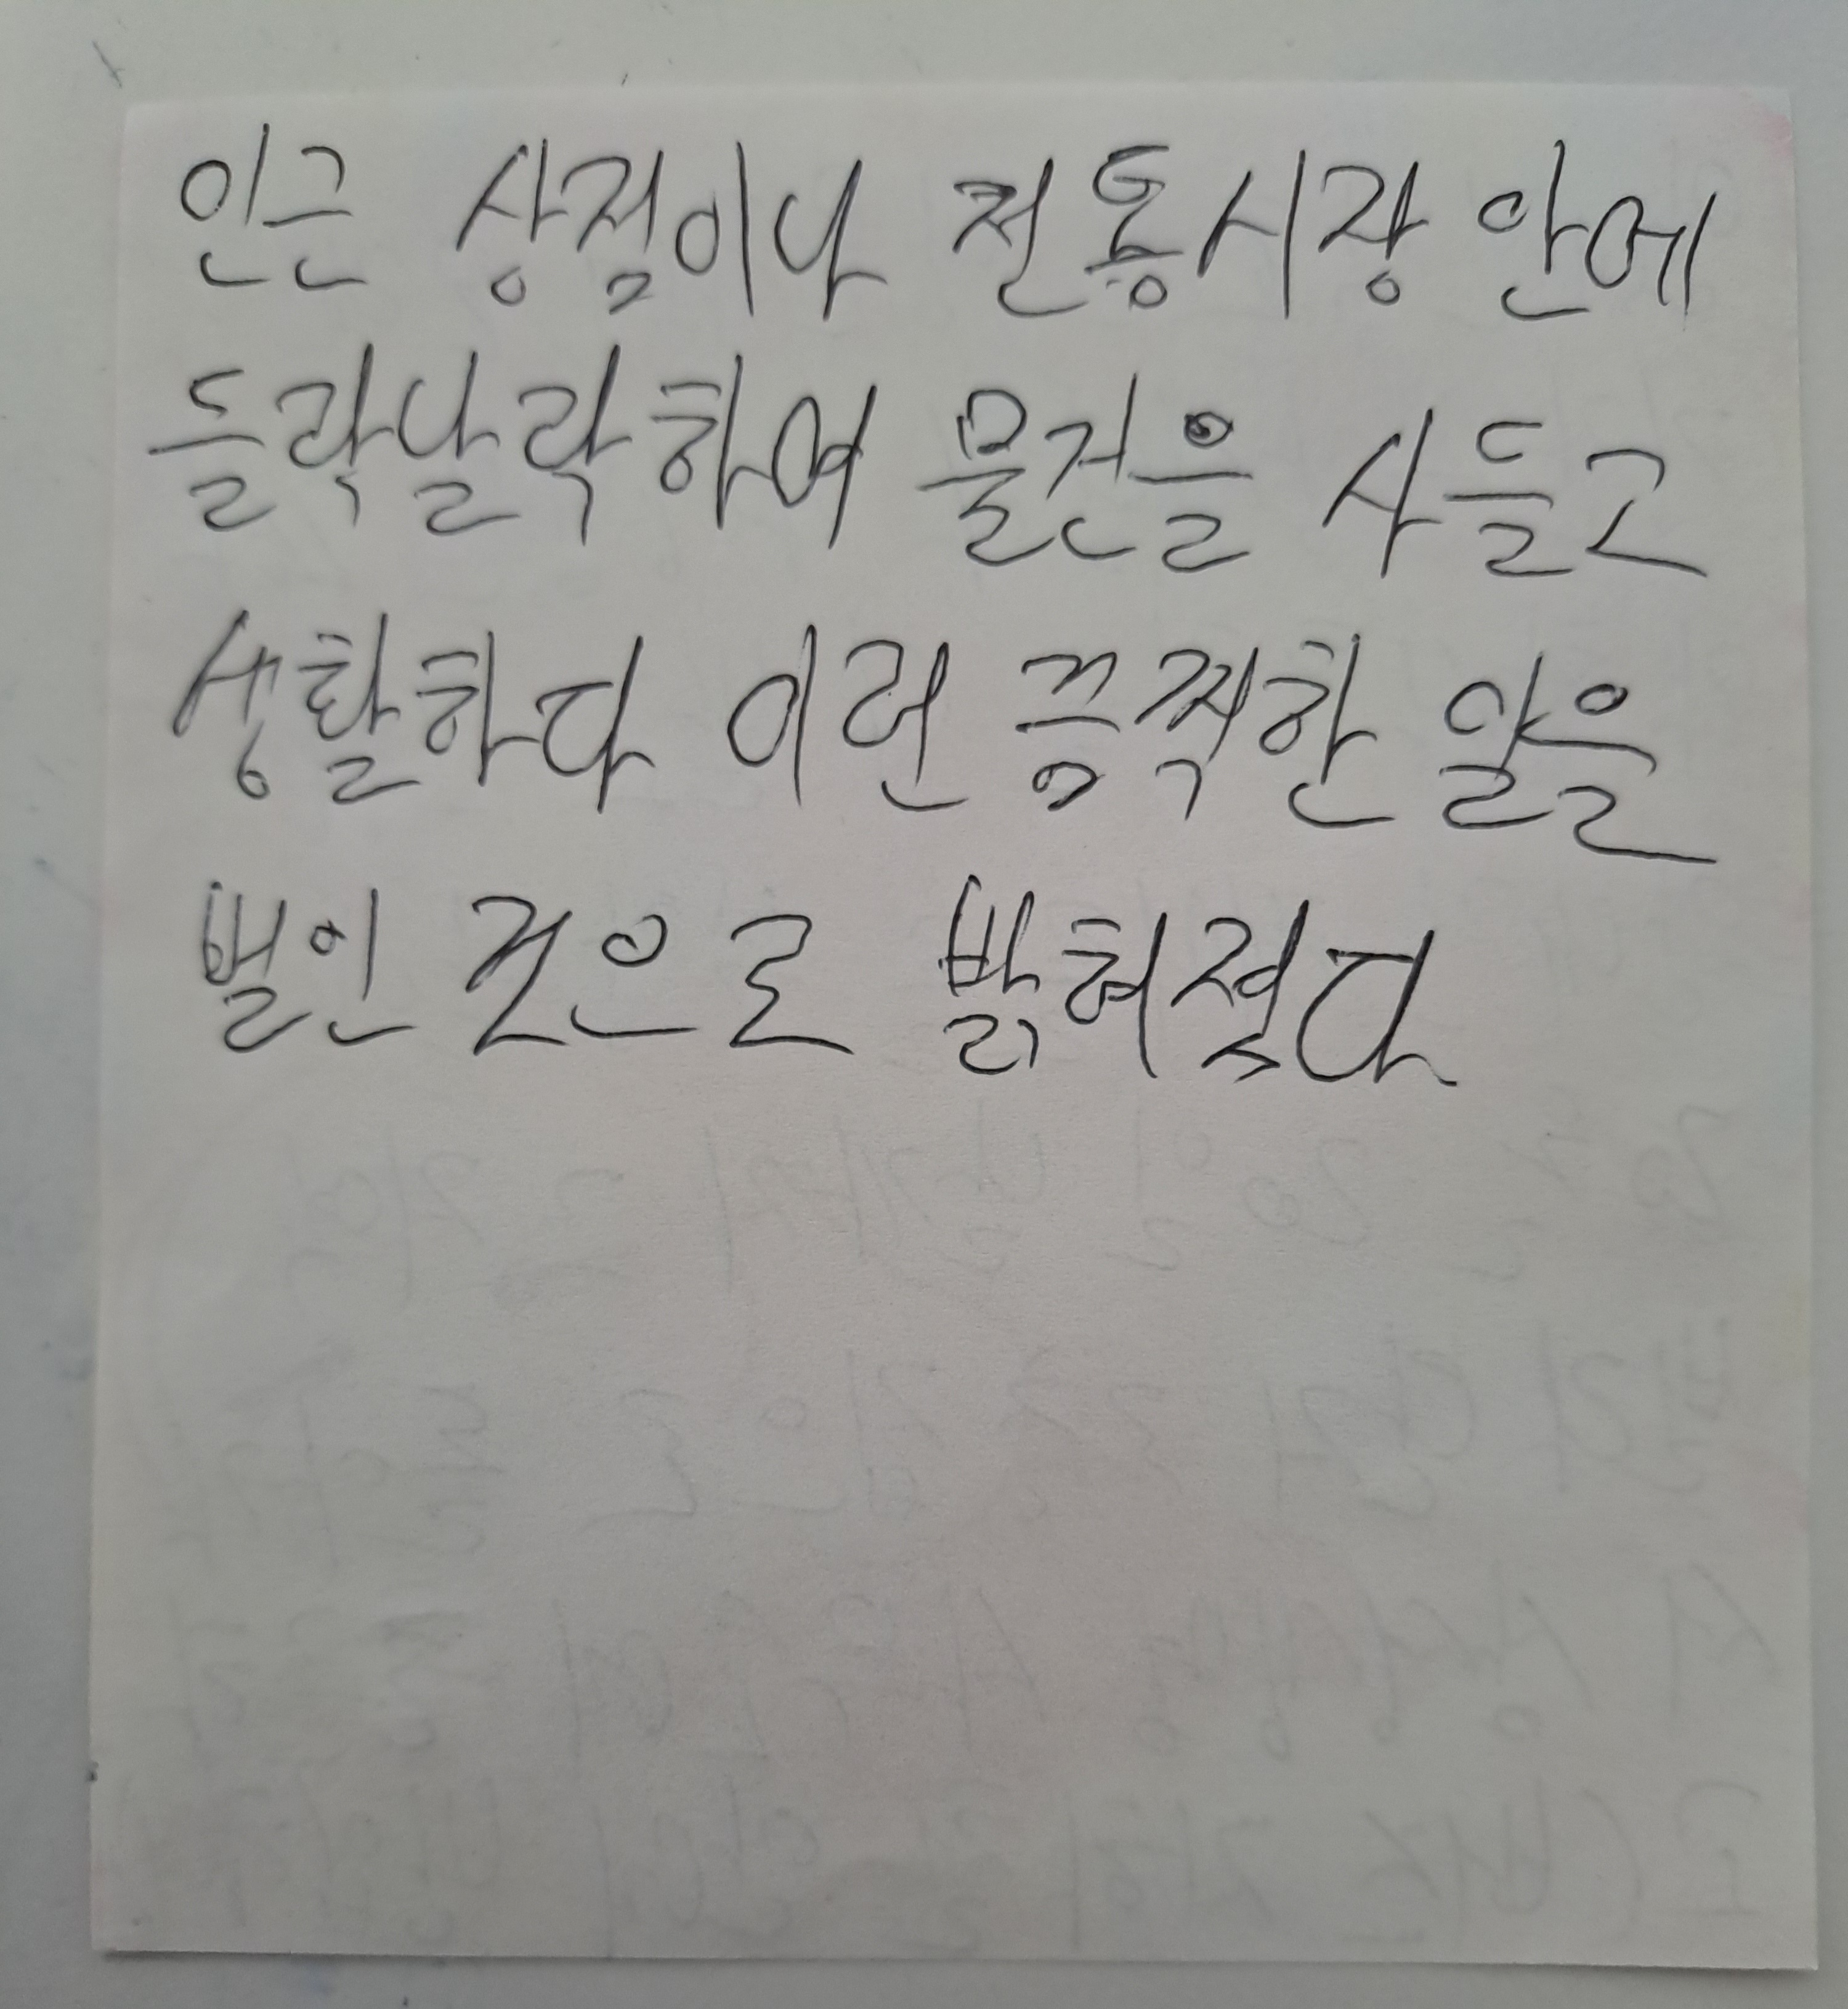 인근 상점이나 전통시장 안에
들락날락하여 물건을 사들고
생활하다 이런 끔찍한 일을
벌인 것으로 밝혀졌다